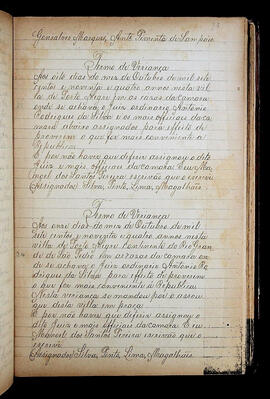 Gonsalves Marques, Anto Pimenta de Sampaio
Termo de Veriança
Aos oito dias do mez de Outubro de mil sete
centos e noventa e quatro annos nesta vil
la de Porto Alegre em as casas da camara
onde se achava o Juiz ordinario Antonio
Rodrigues da Silva e os mais officiaes da ca
mara abaixo assignados para effeito de
proverem o que for mais conveniente a
Republica.
E por não haver que deferir assignou o dito
Juiz e mais officiaes da camara Eu Ma-
noel dos Santos Pereira escrivão que o escrevi
Assignados Silva, Pinto, Lima, Magalhães
Termo de Veriança
Aos onze dias do mez de Outubro de mil
sete centos e noventa e quatro annos nesta
villa de Porto Alegre continente do Rio Gran
de de São Pedro em as casas da camara on
de se achava o Juiz ordinario Antonio Ro
drigues da Silva para effeito de proverem
o que for mais conveniente á Republica
Nesta veriança se mandou por o assou
gue desta villa em praça
E por não haver que deferir assignou o
dito Juiz e mais officiaes da camara E eu
Manoel dos Santos Pereira escrivão que o
escrevi
Assignados Silva, Pinto, Lima, Magalhães